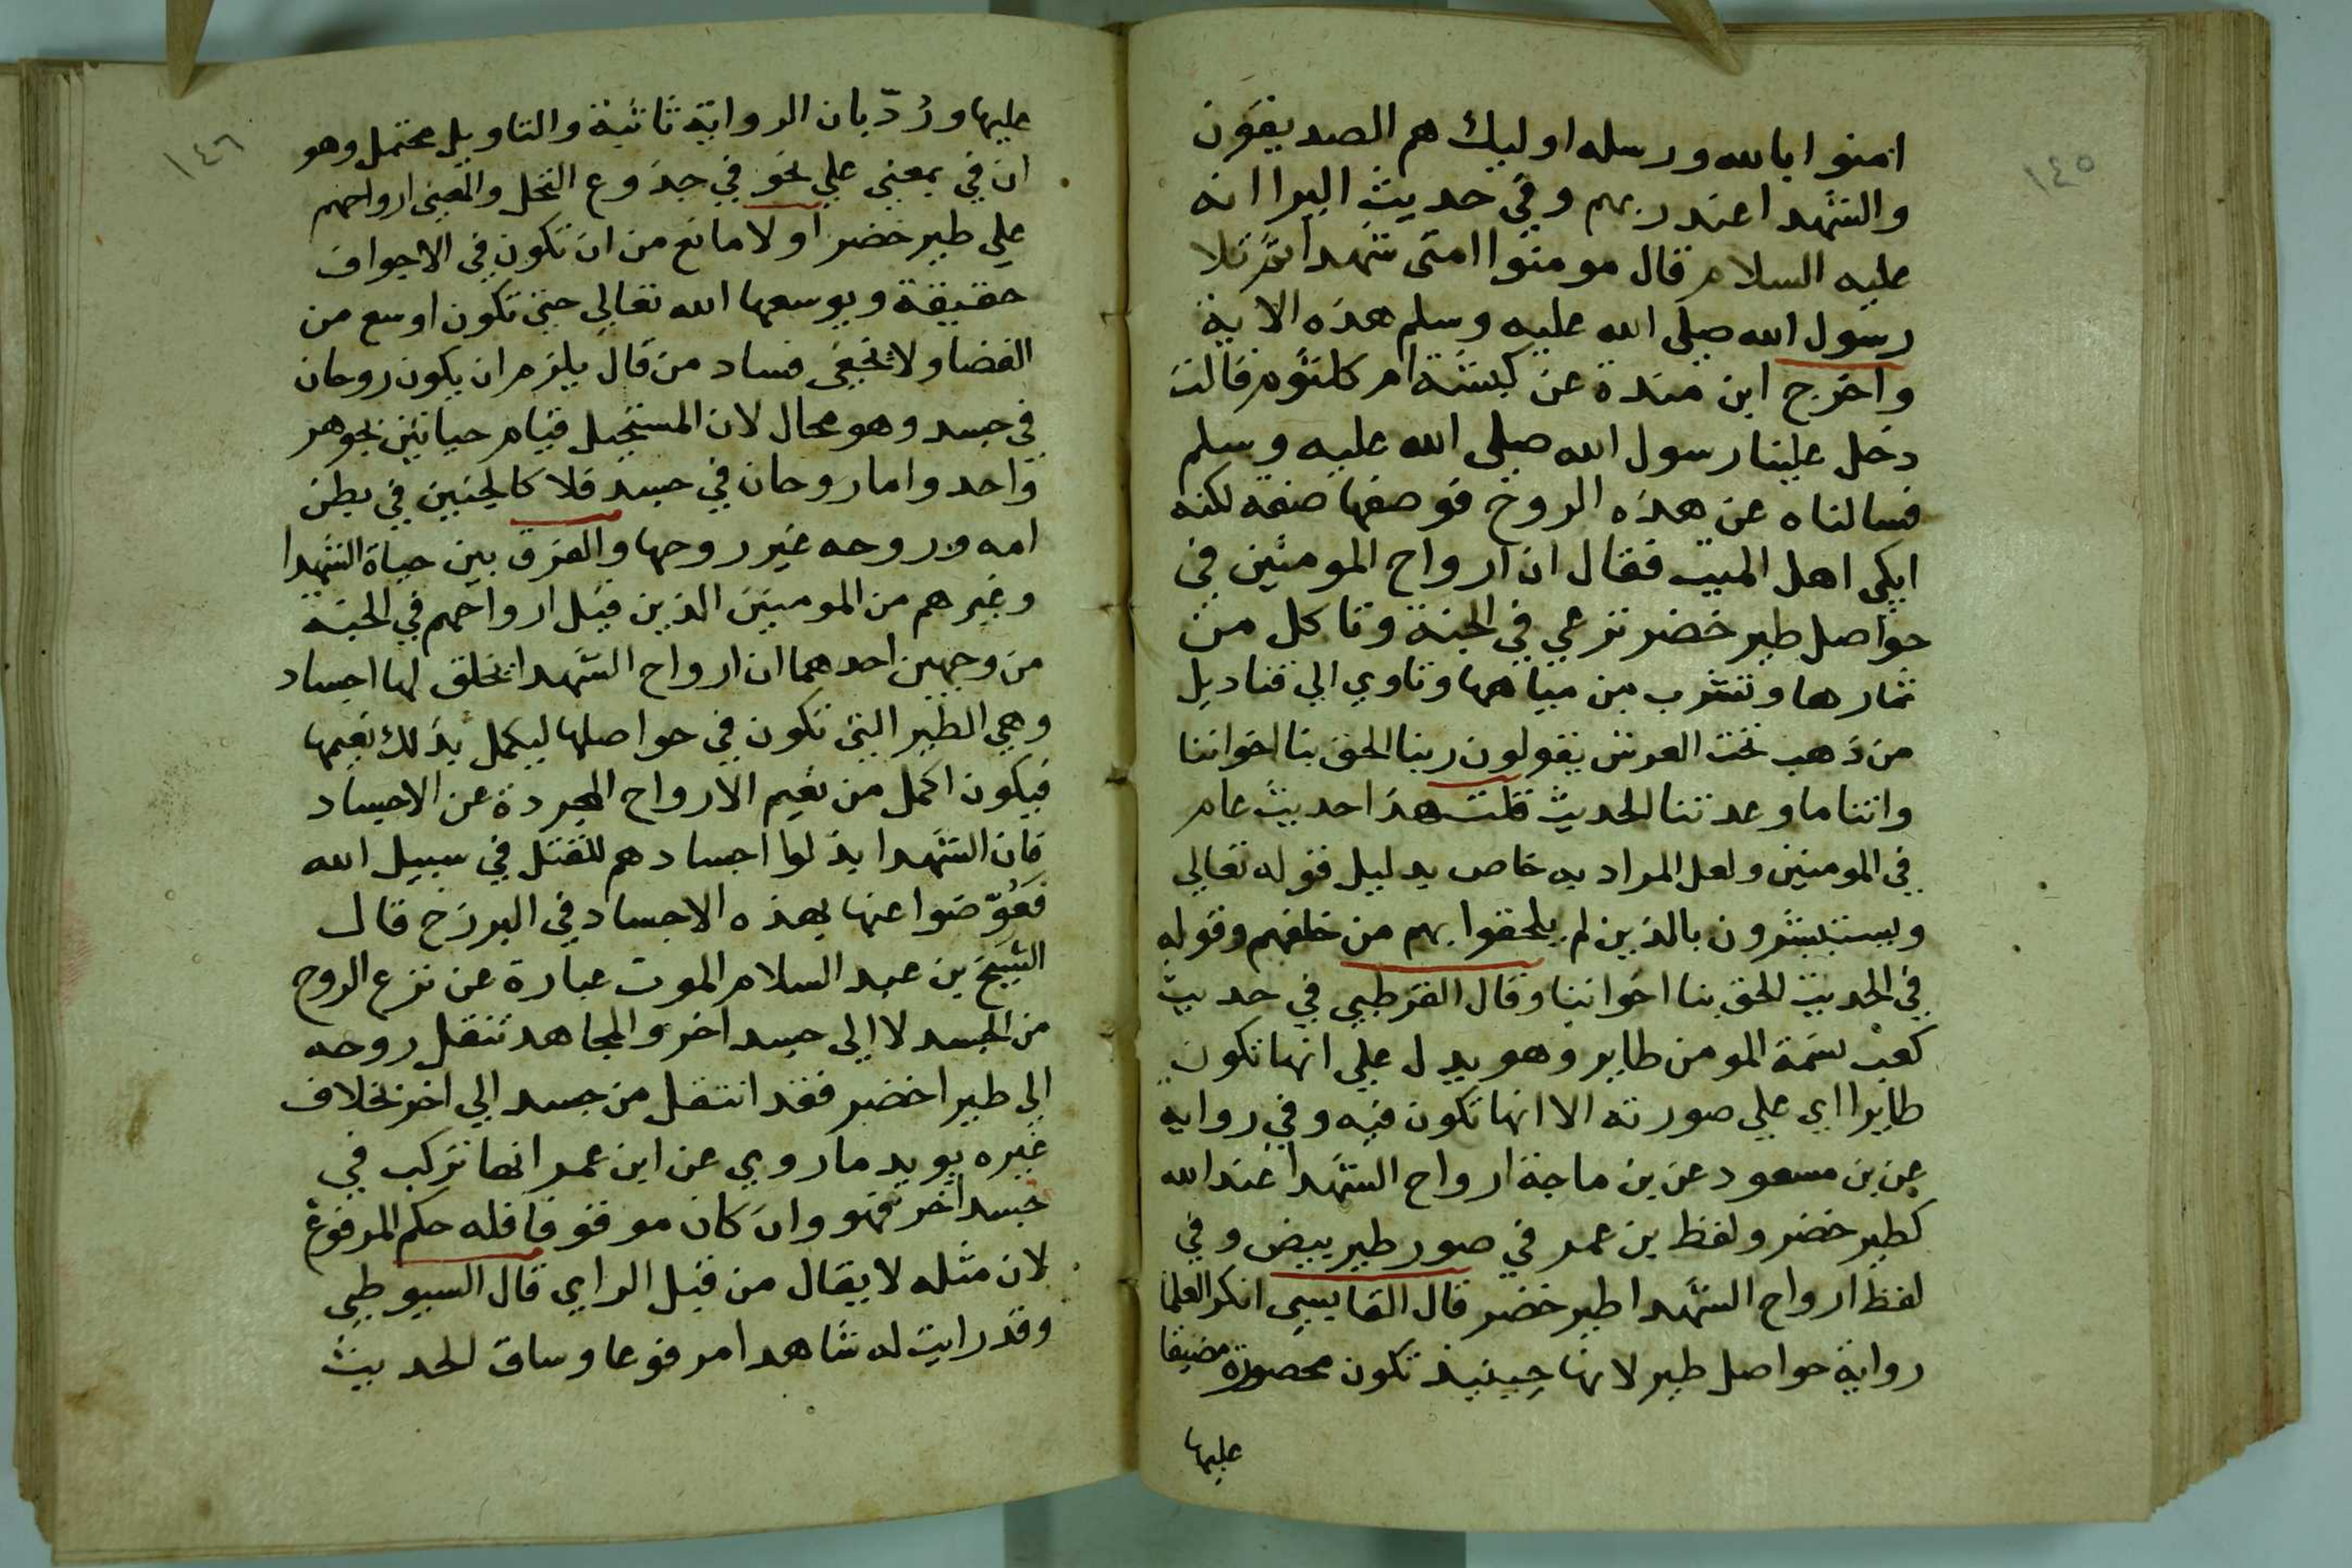 ١٤٥
امنوا بالله ورسله اوليك هم الصديقون
والشهدا عند ربهم وفي حديث البرا انه
عليه السلام قال مومنوا امتى شهدا ثم تلا
رسول الله صلى الله عليه وسلم هذه الاية
واخرج ابن مندة عن كبشة ام كلثوم قالت
دخل علينا رسول الله صلى الله عليه وسلم
فسالناه عن هذه الروح فوصفها صفة لكنه
ابكى اهل الميت فقال ان ارواح المومنين في
حواصل طير خضر ترعي في الجنة وتاكل من
ثمارها وتشرب من مياهها وتاوي الي قناديل
من ذهب تحت العرش يقولون ربنا الحق بنا اخواننا
واتنا ما وعدتنا الحديث قلت هذا حديث عام
في المومنين ولعل المراد به خاص بدليل قوله تعالي
ويستبشرون بالذين لم يلحقوا بهم من خلفهم وقوله
في الحديث الحق بنا اخواننا وقال القرطبي في حديث
كعب نسمة المومن طاير وهو يدل علي انها تكون
طايرا اي علي صورته الا انها تكون فيه وفي رواية
عن بن مسعود عن بن ماجة ارواح الشهدا عند الله
كطير خضر ولفظ بن عمر في صور طير بيض وفي
لفظ ارواح الشهدا طير خضر قال القابسي انكر العلما
رواية حواصل طير لانها حينيذ تكون محصورة مضيقا
عليها
١٤٦
عليها وردّ بان الرواية ثابتة والتاويل محتمل وهو
ان في بمعني علي نحو في جذوع النخل والمعنى ارواحهم
علي طير خضر اولا مانع من ان تكون في الاجواف
حقيقة ويوسعها الله تعالي حتى تكون اوسع من
الفضا ولا يخفى فساد من قال يلزم ان يكون روحان
في جسد وهو محال لان المستحيل قيام حياتين بجوهر
واحد واما روحان في جسد فلا كالجنين في بطن
امه وروحه غير روحها والفرق بين حياة الشهدا
وغيرهم من المومنين الذين قيل ارواحهم في الجنة
من وجهين احدهما ان ارواح الشهدا يخلق لها اجساد
وهي الطير التي تكون في حواصلها ليكمل بذلك نعيمها
فيكون اكمل من نعيم الارواح المجردة عن الاجساد
فان الشهدا بذلوا اجسادهم للقتل في سبيل الله
فعُوّضوا عنها بهذه الاجساد في البرزخ قال
الشيخ بن عبد السلام الموت عبارة عن نزع الروح
من الجسد لا الي جسد اخر والمجاهد تنقل روحه
الي طير اخضر فقد انتقل من جسد الي اخر بخلاف
غيره يويد ما روي عن ابن عمر انها تركب في
جسد اخر فهو وان كان موقوفا فله حكم المرفوع
لان مثله لا يقال من قبل الراي قال السيوطي
وقد رايت له شاهدا مرفوعا وساق الحديث